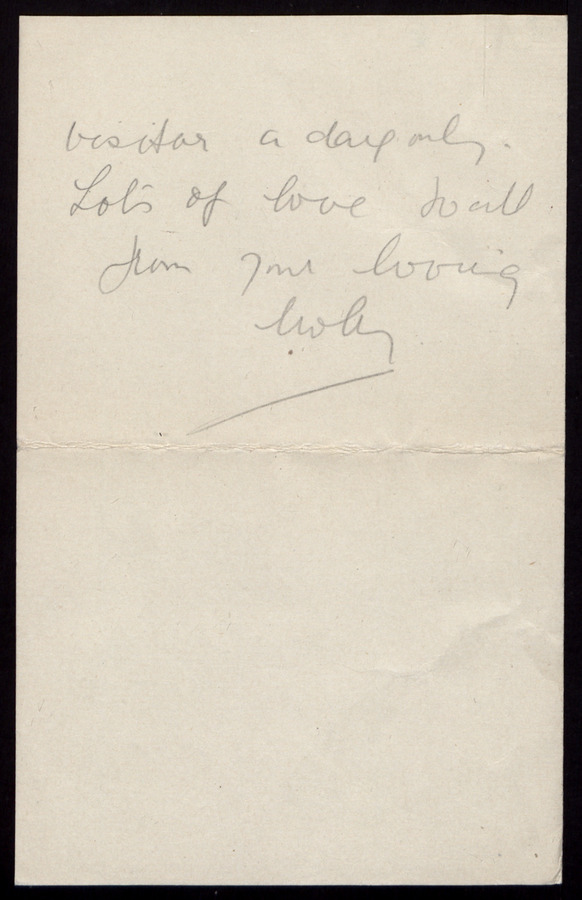 visitor a day only.
Lots of love to all
from your loving